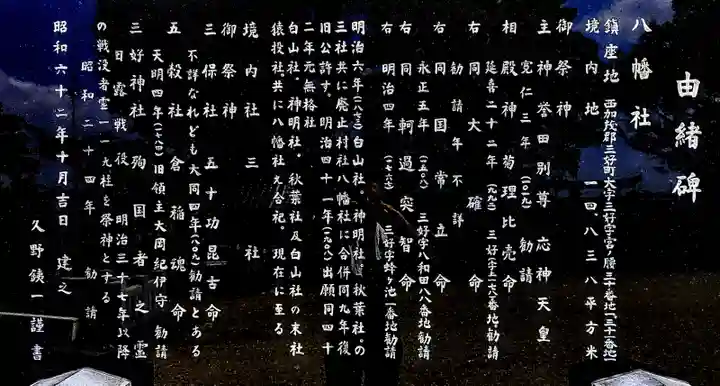 由緒碑
八幡社
鎮座地 西加茂郡三好町大字三好字宮ノ腰三十番地(三十一番地)
境内地 一四、八三八平方米
御祭神
主神誉田別尊 応神天皇
寛仁三年(一〇一九) 勧請
相殿神菊理比売命
延喜二十二年(九二二) 三好(字上)一六八番地勧請
右同 大確命
勧請年不詳
右同 国常立命
永正五年(一五〇八) 三好字八和田八八番地勧請
右同 軻遇突智命
右 明治四年(一八七一) 三好字蜂ヶ池一番地勧請
明治六年(一八七三)白山社。神明社。秋葉社。の
三社共に廃止村社八幡社に合併同九年復
旧公許す。明治四十一年(一九〇八)出願同四十
二年元無格社
白山社。神明社。秋葉社及白山社の末社
猿投社共に八幡社え合祀。現在に至る
境内社 三社
御祭神
三保社 五十功昆古命
不詳なれども大同四年(八〇九)勧請とある
五穀社 倉稲魂命
天明四年(一七八四)旧領主大岡紀伊守 勧請
三好神社 殉国者之霊
日露戦役 明治三十七年以降
の戦没者霊一一九柱を祭神とする
昭和二十四年 勧請
昭和六十二年十月吉日 建之
久野銕一謹書